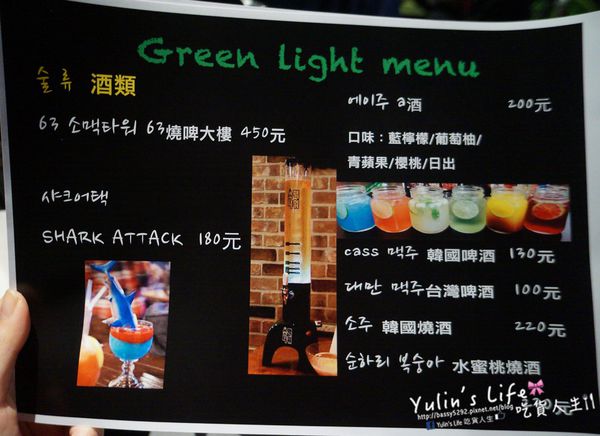 Green light menu
술류 酒類
63 소맥타워 63燒啤大樓 450元
샤크어택
SHARK ATTACK 180元
에이주 a酒 200元
口味：藍檸檬/葡萄柚/
青蘋果/櫻桃/日出
cass 맥주 韓國啤酒 130元
대만 맥주 台灣啤酒 100元
소주 韓國燒酒 220元
순하리 복숭아 水蜜桃燒酒
Yulin's Life 吃貨人生
http://bassy5292.pixnet.net/blog
Yulin's Life 吃貨人生